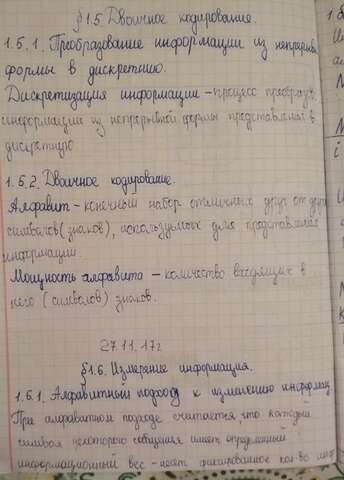 §1.5 Двоичное кодирование.
1.5.1. Преобразование информации из непрерыв
формы в дискретную.
Дискретизация информации – процесс преобразов
информации из непрерывной формы представления в
дискретную
1.5.2. Двоичное кодирование.
Алфавит – конечный набор отличных друг от друга
символов (знаков), используемых для представления
информации.
Мощность алфавита – количество входящих в
него (символов) знаков.
27.11.17г
§1.6. Измерение информации.
1.6.1. Алфавитный подход к измерению информац
При алфавитном подходе считается, что каждый
символ некоторого сообщения имеет определённый
информационный вес – несёт фиксированное кол-во инф